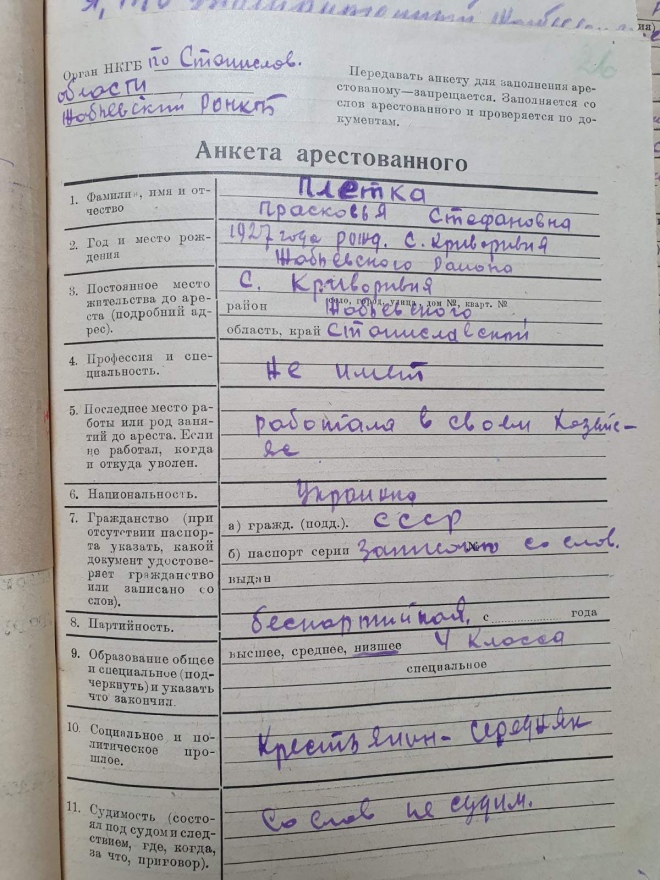 Я, 
26
Орган НКГБ по Станислов.
области
Жабьевский РОНКГБ
Передавать анкету для заполнения аре-
стованому—запрещается. Заполняется со
слов арестованного и проверяется по до-
кументам.
Анкета арестованного
1. Фамилия, имя и от-
чество
Плетка
Прасковья Стефановна
2. Год и место рож-
дения
1927 года рожд. С. Криворивня
Жабьевского района
3. Постоянное место
жительства до аре-
ста (подробний ад-
рес).
С. Криворивня
село, город, улица, дом №, кварт. №
район Жабьевского
область, край Станиславский
4. Профессия и спе-
циальность.
Не имеет
5. Последнее место ра-
боты или род заня-
тий до ареста. Если
не работал, когда
и откуда уволен.
работала в своем хозяйс-
ве
6. Национальность.
Украинка
7. Гражданство (при
отсутствии паспор-
та указать, какой
документ удостове-
ряет гражданство
или записано со
слов).
а) гражд. (подд.). СССР
б) паспорт серии № Записано со слов.
выдан
8. Партийность.
беспартийная, с года
9. Образование общее
и специальное (под-
черкнуть) и указать
что закончил.
высшее, среднее, низшее 4 класса
специальное
10. Социальное и по-
литическое про-
шлое.
Крестьянин-середняк
11. Судимость (состо-
ял под судом и след-
ствием, где, когда,
за что, приговор).
Со слов не судим.